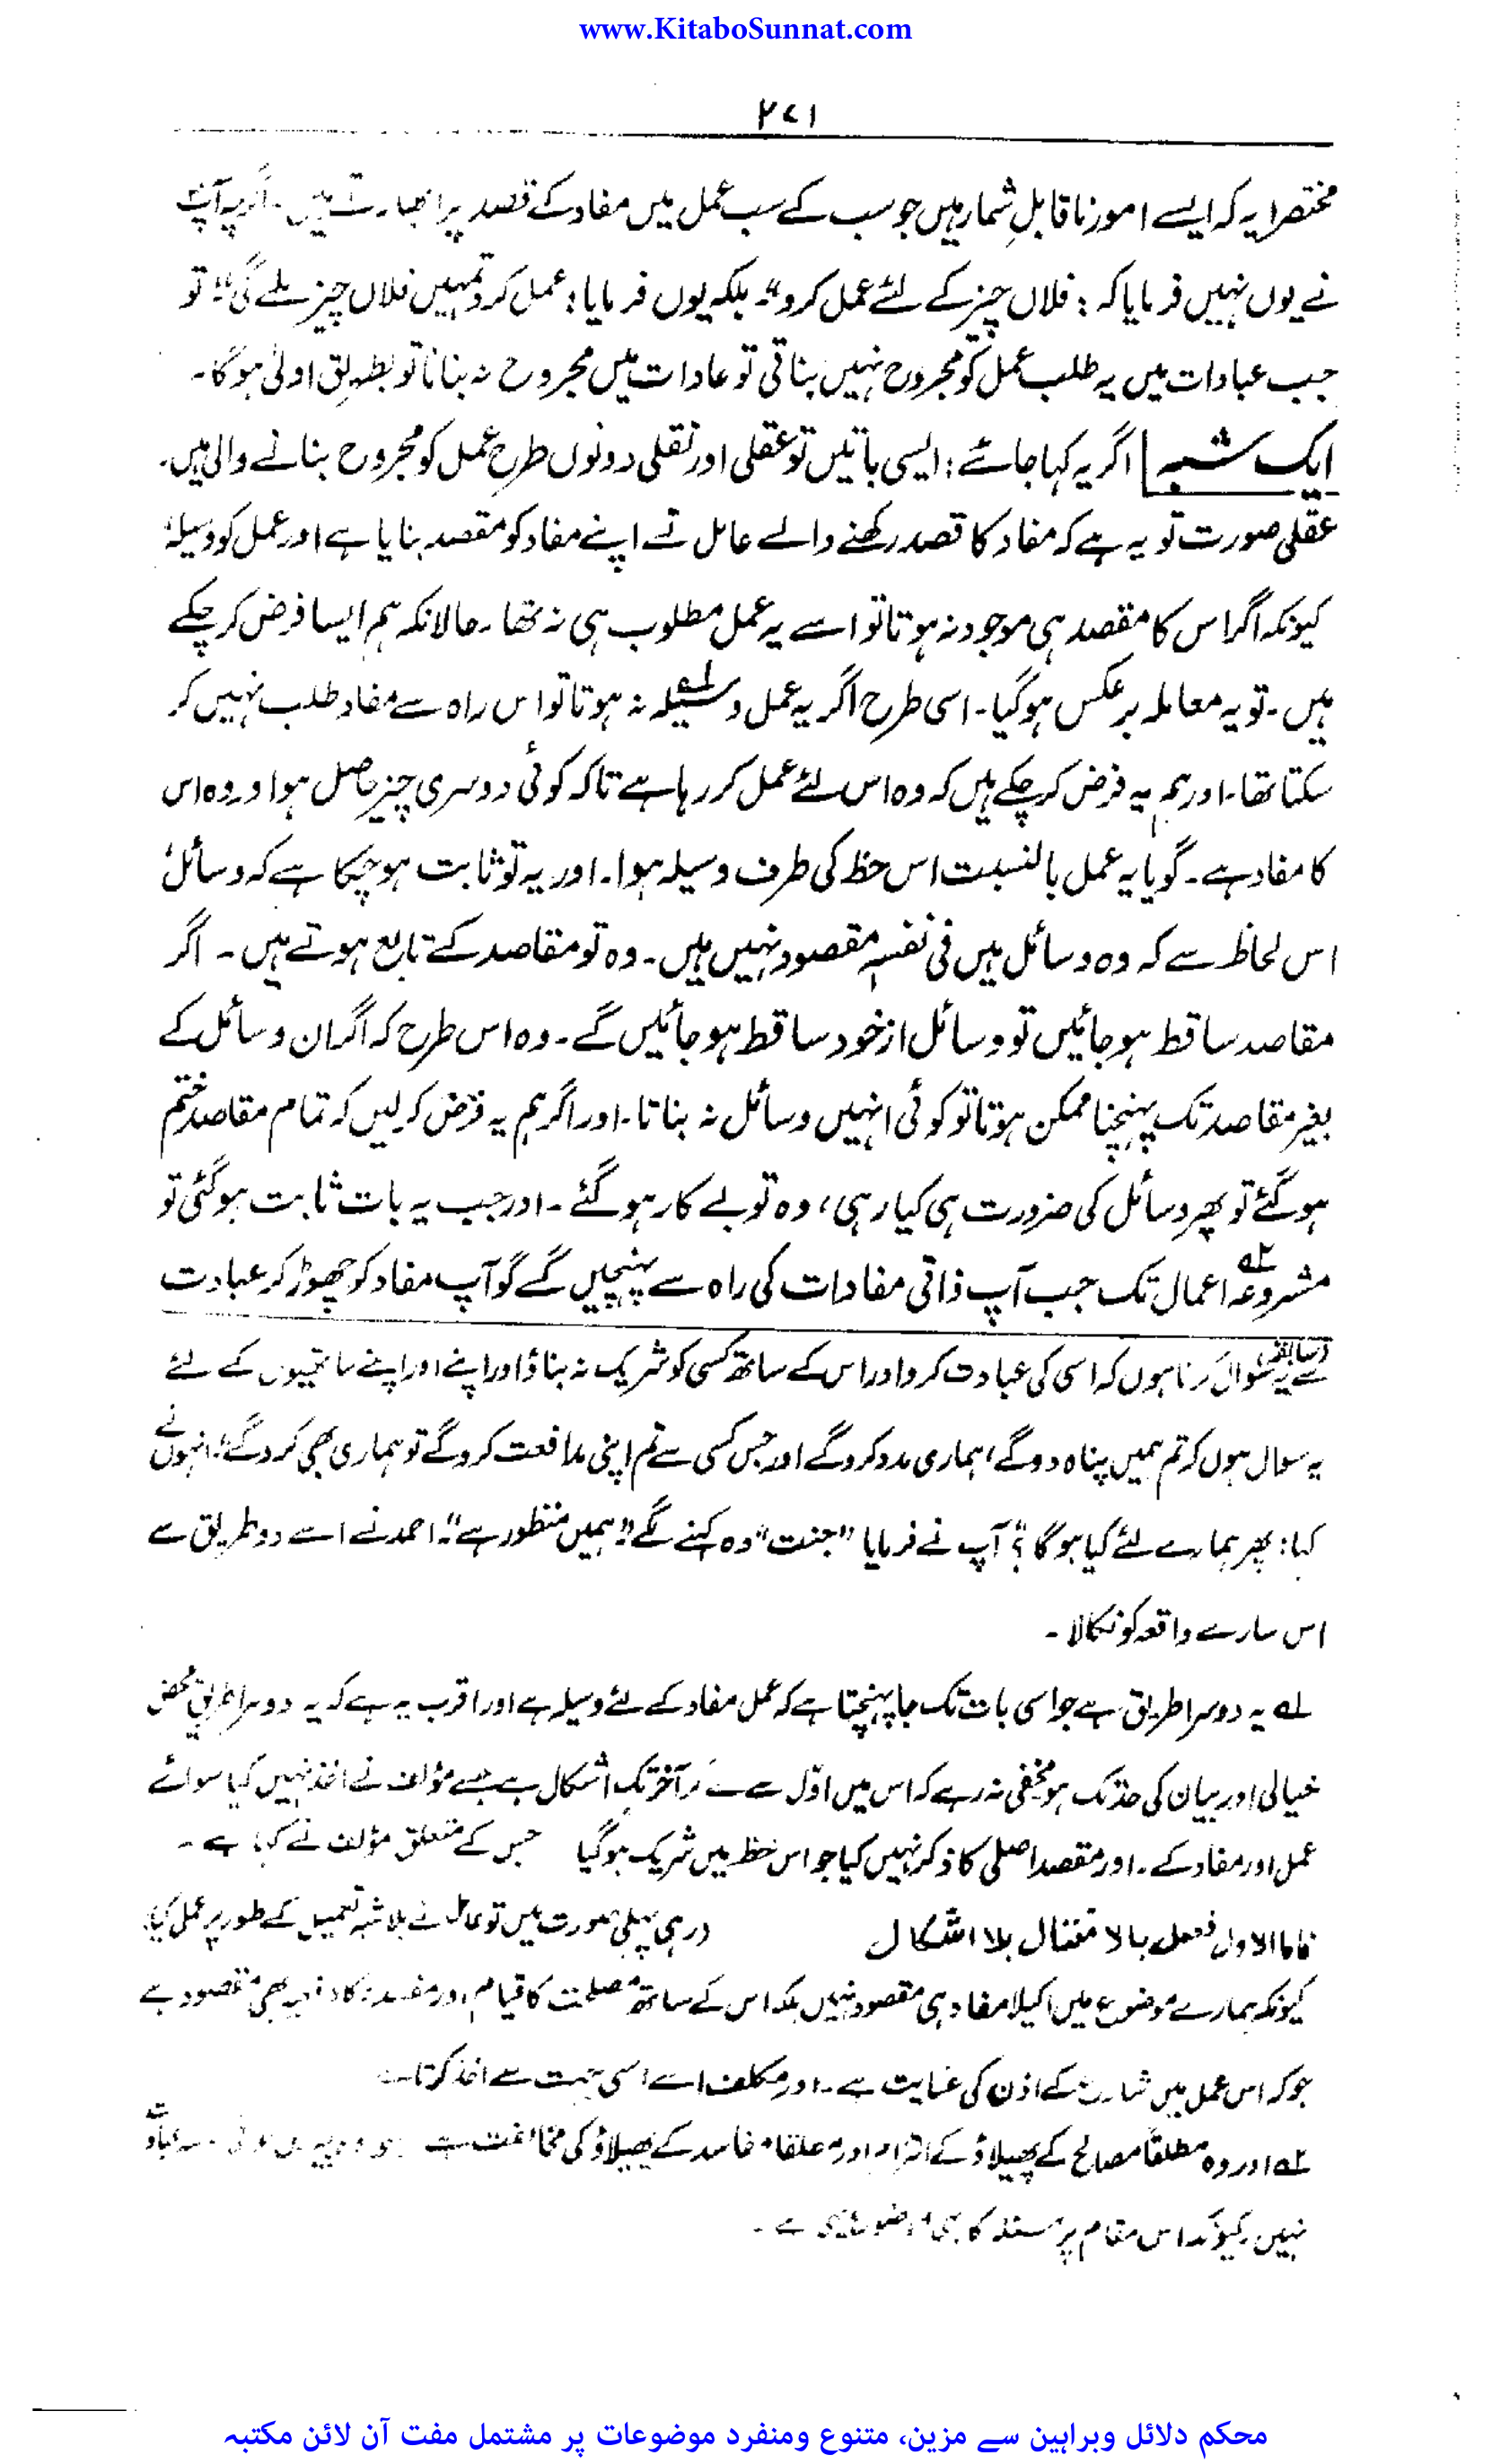 www.KitaboSunnat.com
۲۷۱
مختصرا یہ کہ ایسے امور ناقابلِ شمار ہیں جو سب کے سب عمل میں مفاد کے قصد پر ابھارتے ہیں۔ اگرچہ آپؐ
نے یوں نہیں فرمایا کہ: فلاں چیز کے لئے عمل کرو“۔ بلکہ یوں فرمایا: عمل کرو تمہیں فلاں چیز ملے گی“؛ تو
جب عبادات میں یہ طلب عمل کو مجروح نہیں بناتی تو عادات میں مجروح نہ بنانا تو بطریق اولیٰ ہو گا۔
ایک شبہ اگر یہ کہا جائے: ایسی باتیں تو عقلی اور نقلی دونوں طرح عمل کو مجروح بنانے والی ہیں۔
عقلی صورت تو یہ ہے کہ مفاد کا قصد رکھنے والے عامل نے اپنے مفاد کو مقصد بنایا ہے اور عمل کو وسیلہ؛
کیونکہ اگر اس کا مقصد ہی موجود نہ ہوتا تو اسے یہ عمل مطلوب ہی نہ تھا۔ حالانکہ ہم ایسا فرض کر چکے
ہیں۔ تو یہ معاملہ برعکس ہو گیا۔ اسی طرح اگر یہ عمل وسیلہ لہ نہ ہوتا تو اس راہ سے مفاد طلب نہیں کر
سکتا تھا۔ اور ہم یہ فرض کر چکے ہیں کہ وہ اس لئے عمل کر رہا ہے تاکہ کوئی دوسری چیز حاصل ہو اور وہ اس
کا مفاد ہے۔ گویا یہ عمل بالنسبت اس حظ کی طرف وسیلہ ہوا۔ اور یہ تو ثابت ہو چکا ہے کہ وسائل؛
اس لحاظ سے کہ وہ وسائل ہیں فی نفسہٖ مقصود نہیں ہیں۔ وہ تو مقاصد کے تابع ہوتے ہیں۔ اگر
مقاصد ساقط ہو جائیں تو وسائل از خود ساقط ہو جائیں گے۔ وہ اس طرح کہ اگر ان وسائل کے
بغیر مقاصد تک پہنچنا ممکن ہوتا تو کوئی انہیں وسائل نہ بناتا۔ اور اگر ہم یہ فرض کر لیں کہ تمام مقاصد ختم
ہو گئے تو پھر وسائل کی ضرورت ہی کیا رہی، وہ تو بے کار ہو گئے۔ اور جب یہ بات ثابت ہو گئی تو
مشروعہ ۲ہ اعمال تک جب آپ ذاتی مفادات کی راہ سے پہنچیں گے گو آپ مفاد کو چھوڑ کر عبادت
سے یہ سوال کرتا ہوں کہ اسی کی عبادت کرو اور اس کے ساتھ کسی کو شریک نہ بناؤ اور اپنے اور اپنے ساتھیوں کے لئے
یہ سوال ہوں کہ تم ہمیں پناہ دو گے، ہماری مدد کرو گے اور جس کسی سے تم اپنی مدافعت کرو گے تو ہماری بھی کرو گے“؛ انہوں نے
کہا: پھر ہمارے لئے کیا ہو گا؟“ آپ نے فرمایا ”جنت“ وہ کہنے لگے ”ہمیں منظور ہے“۔ احمد نے اسے دو طریق سے
اس سارے واقعہ کو نکالا۔
لہ یہ دوسرا طریق ہے جو اسی بات تک جا پہنچتا ہے کہ عمل مفاد کے لئے وسیلہ ہے اور اقرب یہ ہے کہ یہ دوسرا طریق محض
خیالی اور بیان کی حد تک ہو مخفی نہ رہے کہ اس میں اوّل سے لے کر آخر تک اشکال ہے جسے مؤلف نے اخذ نہیں کیا سوائے
عمل اور مفاد کے۔ اور مقصد اصلی کا ذکر نہیں کیا جو اس حظ میں شریک ہو گیا جس کے متعلق مؤلف نے کہا ہے۔
فاما الاول فعمل بالامتثال بلا اشکال (رہی پہلی صورت میں تو عامل نے بلاشبہ تعمیل کے طور پر عمل کیا)
کیونکہ ہمارے موضوع میں اکیلا مفاد ہی مقصود نہیں بلکہ اس کے ساتھ مصلحت کا قیام اور مفسدہ کا دفعیہ بھی مقصود ہے
جو کہ اس عمل میں شارع کے اذن کی غایت ہے۔ اور مکلف اسے اسی جہت سے اخذ کرتا ہے
۲ہ اور وہ مطلقاً مصالح کے پھیلاؤ کے التزام اور مطلقاً مفاسد کے پھیلاؤ کی مخالفت ہے
نہیں کیونکہ اس مقام پر مسئلہ کا یہی موضوع ہی ہے۔
محکم دلائل وبراہین سے مزین، متنوع ومنفرد موضوعات پر مشتمل مفت آن لائن مکتبہ